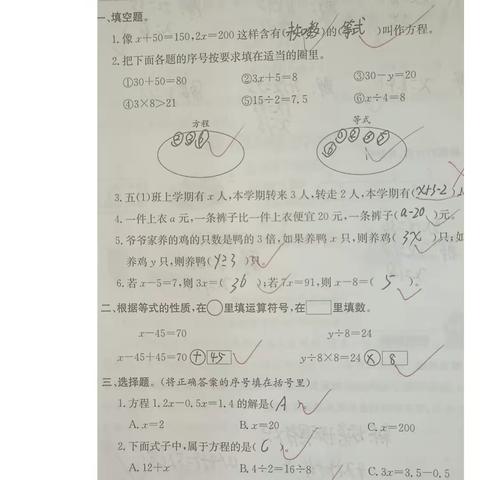 一、填空题。
1.像x+50=150,2x=200这样含有(未知数)的(等式)叫作方程。
2.把下面各题的序号按要求填在适当的圈里。
①30+50=80 ②3x+5=8 ③30-y=20
④3×8>21 ⑤15÷2=7.5 ⑥x÷4=8
方程 等式
②③⑥ ⑥①②③⑤
3.五(1)班上学期有x人,本学期转来3人,转走2人,本学期有(x+3-2)人
4.一件上衣a元,一条裤子比一件上衣便宜20元,一条裤子(a-20)元。
5.爷爷家养的鸡的只数是鸭的3倍,如果养鸭x只,则养鸡(3x)只;如
养鸡y只,则养鸭(y÷3)只。
6.若x-5=7,则3x=(36);若7x=91,则x-8=(5)。
二、根据等式的性质,在○里填运算符号,在□里填数。
x-45=70 y÷8=24
x-45+45=70 + 45 y÷8×8=24 × 8
三、选择题。(将正确答案的序号填在括号里)
1.方程1.2x-0.5x=1.4的解是(A)。
A.x=2 B.x=20 C.x=200
2.下面式子中,属于方程的是(C)。
A.12+x B.4÷2=16÷8 C.3x=3.5-0.5